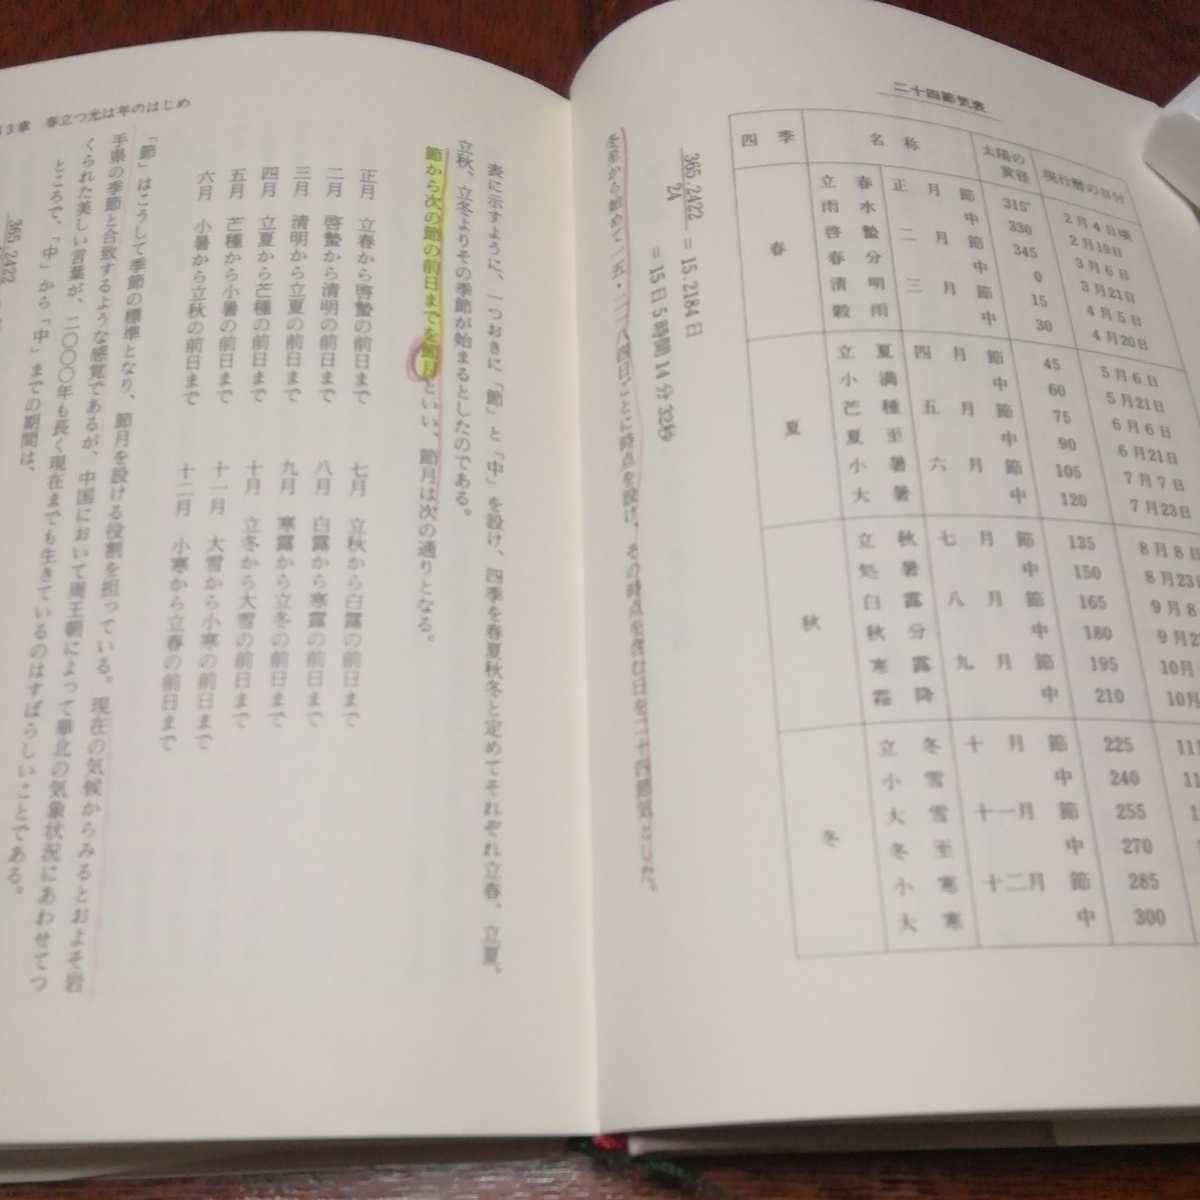 二十四節気表
四季 名称 太陽の黄経 現行暦の日付
春 立春 正月節 315° 2月4日頃
雨水 中 330 2月19日
啓蟄 二月節 345 3月6日
春分 中 0 3月21日
清明 三月節 15 4月5日
穀雨 中 30 4月20日
夏 立夏 四月節 45 5月6日
小満 中 60 5月21日
芒種 五月節 75 6月6日
夏至 中 90 6月21日
小暑 六月節 105 7月7日
大暑 中 120 7月23日
秋 立秋 七月節 135 8月8日
処暑 中 150 8月23日
白露 八月節 165 9月8
秋分 中 180 9月2
寒露 九月節 195 10月
霜降 中 210 10月
冬 立冬 十月節 225 11
小雪 中 240 11
大雪 十一月節 255 1
冬至 中 270
小寒 十二月節 285
大寒 中 300
365.2422
24
＝15.2184日
＝15日5時間14分32秒
冬至から始めて一五・二一八四日ごとに時点を設け、その時点を含む日を二十四節気とした。
3章 春立つ光は年のはじめ
表に示すように、一つおきに「節」と「中」を設け、四季を春夏秋冬と定めてそれぞれ立春、立夏、
立秋、立冬よりその季節が始まるとしたのである。
節から次の節の前日までを節月といい、節月は次の通りとなる。
正月 立春から啓蟄の前日まで 七月 立秋から白露の前日まで
二月 啓蟄から清明の前日まで 八月 白露から寒露の前日まで
三月 清明から立夏の前日まで 九月 寒露から立冬の前日まで
四月 立夏から芒種の前日まで 十月 立冬から大雪の前日まで
五月 芒種から小暑の前日まで 十一月 大雪から小寒の前日まで
六月 小暑から立秋の前日まで 十二月 小寒から立春の前日まで
「節」はこうして季節の標準となり、節月を設ける役割を担っている。現在の気候からみるとおよそ岩
手県の季節と合致するような感覚であるが、中国において周王朝によって華北の気象状況にあわせてつ
くられた美しい言葉が、二〇〇〇年も長く現在までも生きているのはすばらしいことである。
ところで、「中」から「中」までの期間は、
365.2422